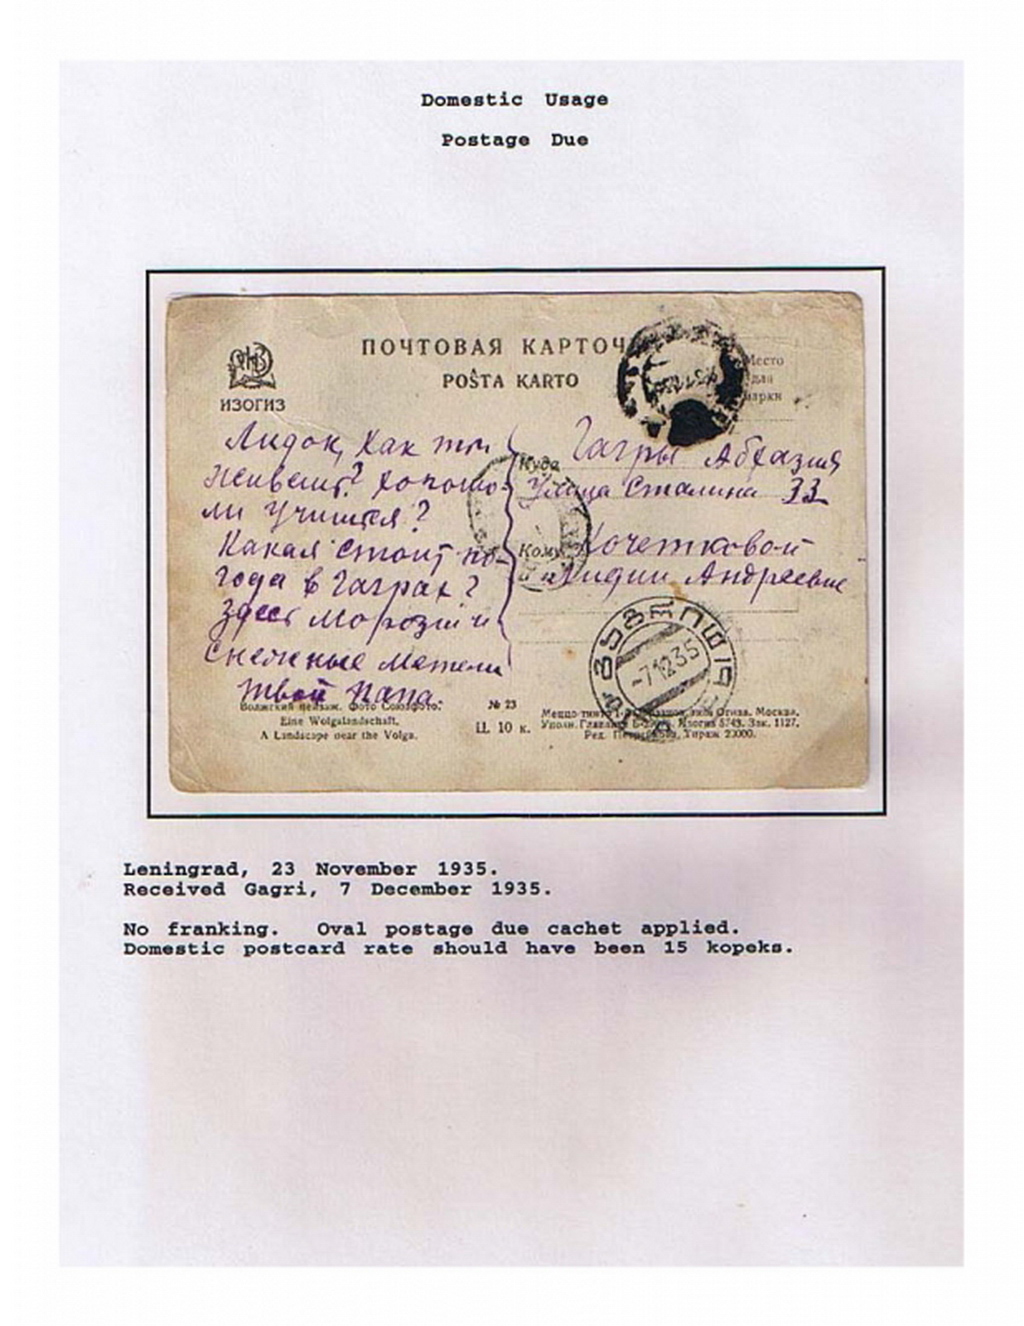 Domestic Usage
Postage Due
ИЗОГИЗ
ПОЧТОВАЯ КАРТОЧ
POŜTA KARTO
Место
для
марки
Лидок, как ты
живешь? хорошо-
ли учишся?
Какая стоит по-
года в Гаграх?
Здесь морозы и
снежные метели
твой папа.
Куда
Гагры Абхазия
Улица Сталина 33
Кому
Кочетковой
Лидии Андреевне
-7 12 35
Волжский пейзаж. Фото Союзфото.
Eine Wolgalandschaft.
A Landscape near the Volga.
№ 23
Ц. 10 к.
Меццо-тинто Огиза. Москва.
Уполн. Главлита Изогиз 5743. Зак. 1127.
Ред. Тираж 25000.
Leningrad, 23 November 1935.
Received Gagri, 7 December 1935.
No franking. Oval postage due cachet applied.
Domestic postcard rate should have been 15 kopeks.